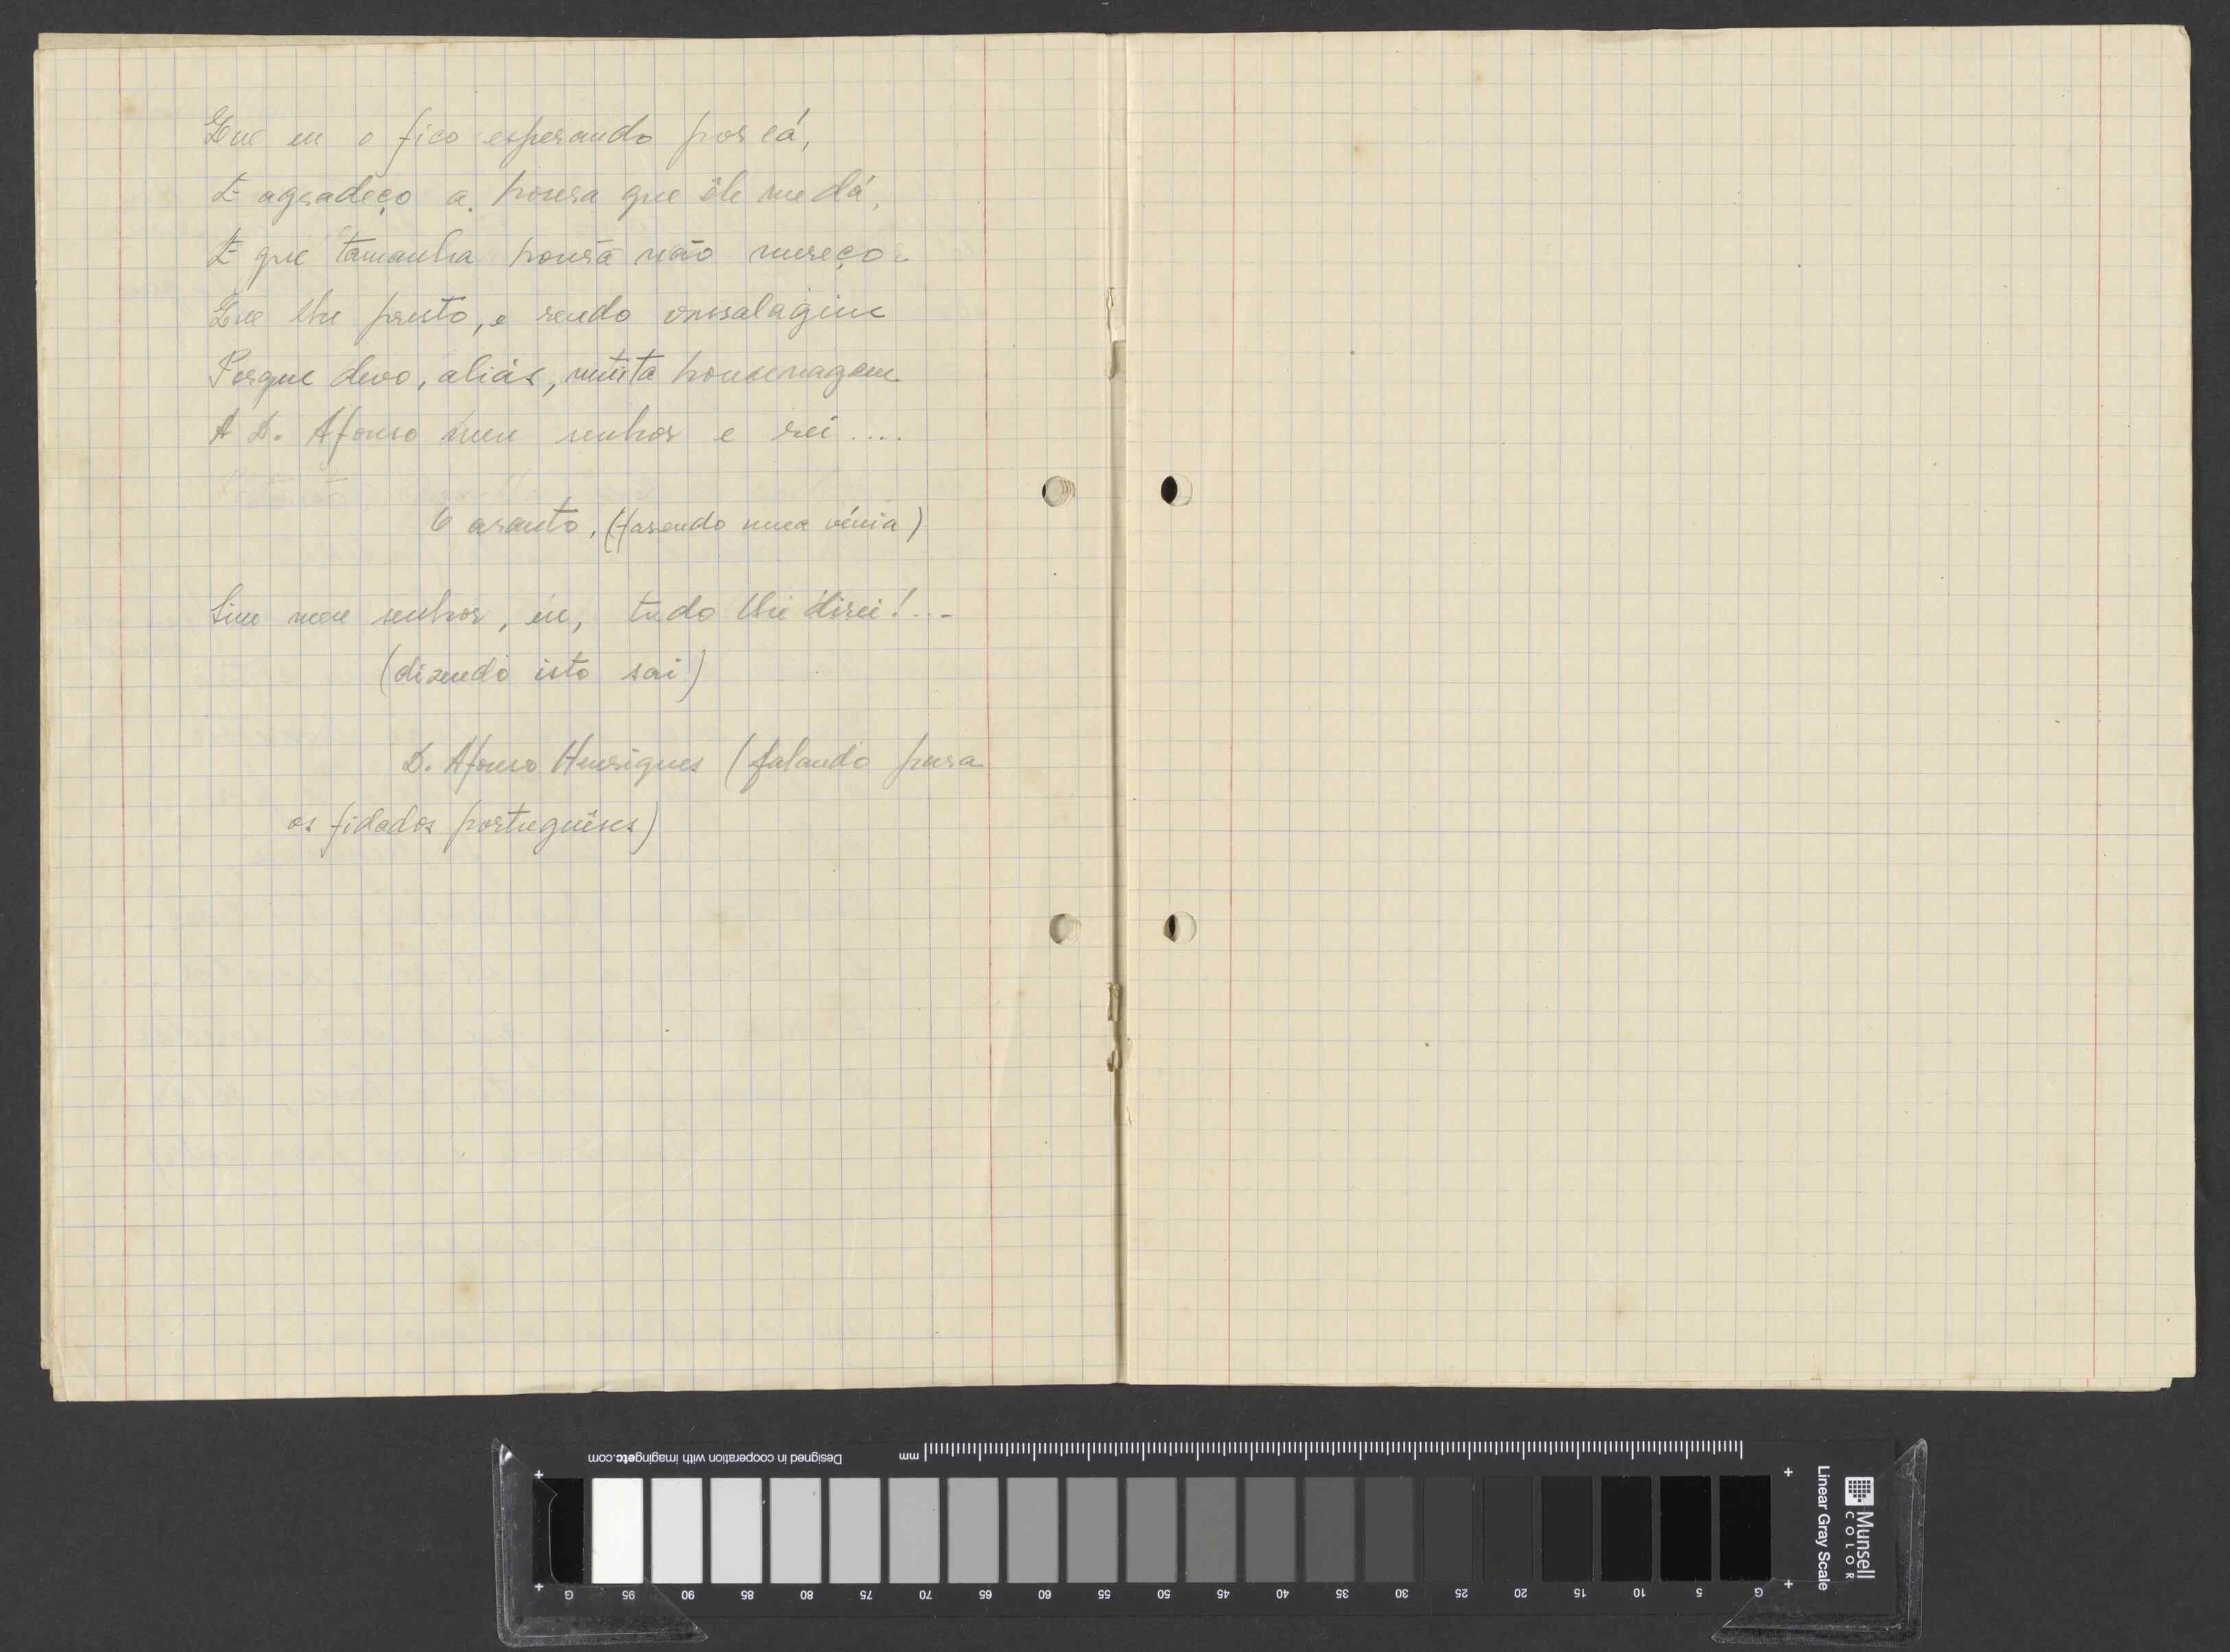 Que eu o fico esperando por cá,
E agradeço a honra que êle me dá,
E que tamanha honra não mereço.
Que lhe presto, e rendo vassalagem
Porque devo, aliás, muita homenagem
A D. Afonso meu senhor e rei....
O arauto, (fasendo uma vénia)
Sim meu senhor, eu, tudo lhe direi!...
(dizendo isto sai)
D. Afonso Henriques (falando para
os fidados portuguêses)
Designed in cooperation with imagingetc.com
mm
G 95 90 85 80 75 70 65 60 55 50 45 40 35 30 25 20 15 10 5 G
Linear Gray Scale
Munsell
COLOR